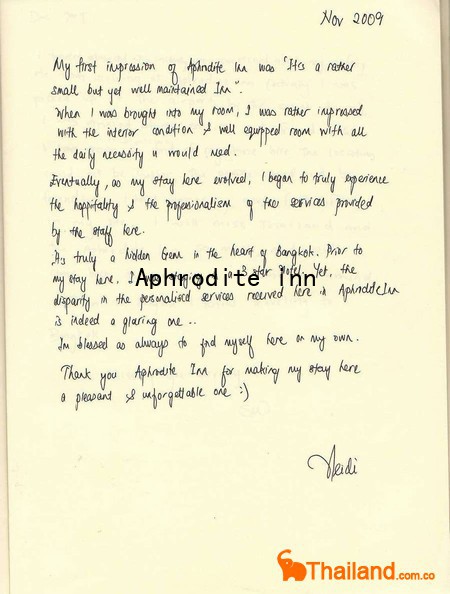 Nov 2009
My first impression of Aphrodite Inn was "It's a rather
small but yet well maintained Inn".
When I was brought into my room, I was rather impressed
with the interior condition & well equipped room with all
the daily necessity u would need.
Eventually, as my stay here evolved, I began to truly experience
the hospitality & the professionalism of the services provided
by the staff here.
It's truly a hidden Gem in the heart of Bangkok. Prior to
my stay here, I was staying in a 3 star hotel. Yet, the
Aphrodite Inn
disparity in the personalised services received here in Aphrodite Inn
is indeed a glaring one..
I'm blessed as always to find myself here on my own.
Thank you Aphrodite Inn for making my stay here
a pleasant & unforgettable one :)
Heidi
Thailand.com.co